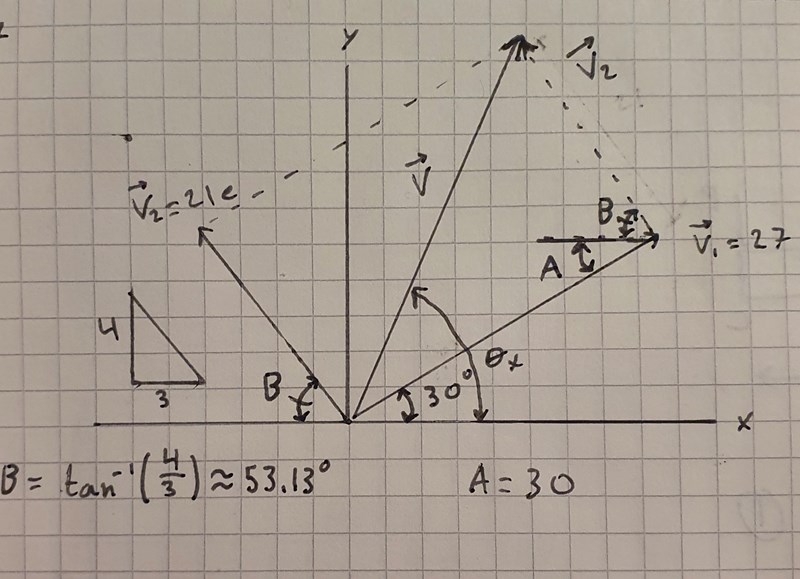 Y
V⃗₂
V⃗
V⃗₂ = 21
B
V⃗₁ = 27
A
4
θₓ
B
30°
3
x
B = tan⁻¹(4/3) ≈ 53.13°
A = 30